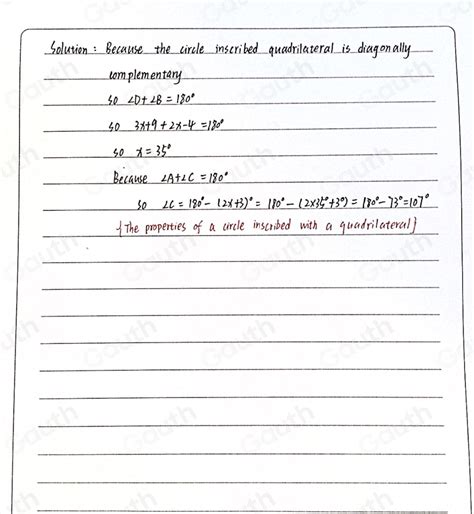 Solution : Because the circle inscribed quadrilateral is diagonally
complementary
so ∠D+∠B = 180°
so 3x+9+2x-4 =180°
so x = 35°
Because ∠A+∠C = 180°
so ∠C = 180° - (2x+3)° = 180° - (2×35°+3°) = 180° - 73° = 107°
{The properties of a circle inscribed with a quadrilateral}